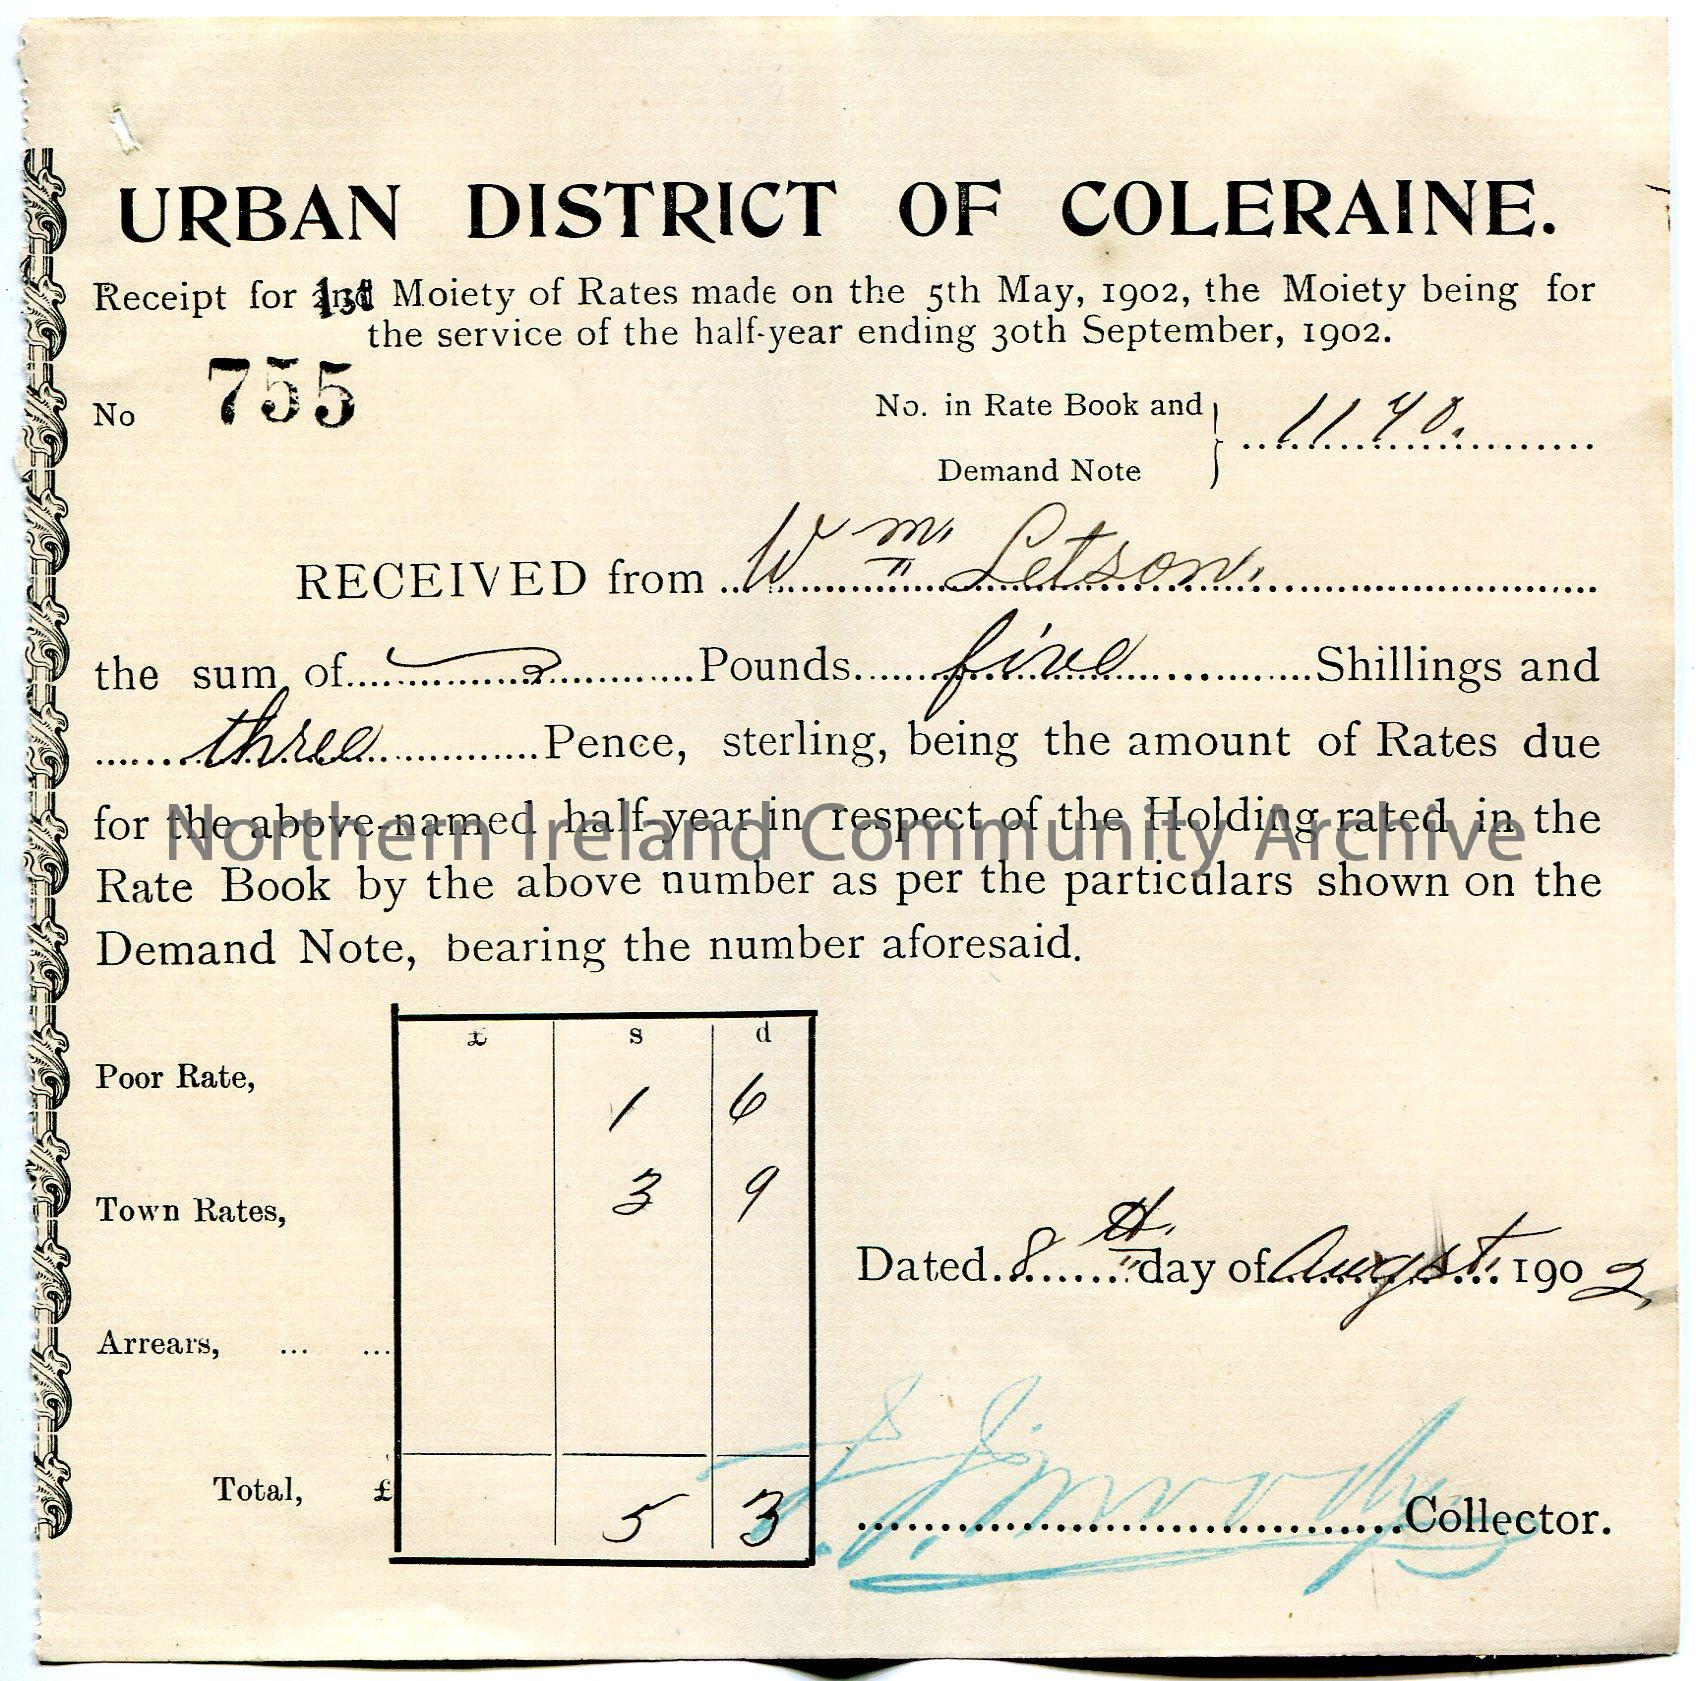 URBAN DISTRICT OF COLERAINE.
Receipt for 1st Moiety of Rates made on the 5th May, 1902, the Moiety being for
the service of the half-year ending 30th September, 1902.
No 755
No. in Rate Book and
Demand Note
1140.
RECEIVED from Wm Letson.
the sum of Pounds five Shillings and
three Pence, sterling, being the amount of Rates due
for the above-named half-year in respect of the Holding rated in the
Northern Ireland Community Archive
Rate Book by the above number as per the particulars shown on the
Demand Note, bearing the number aforesaid.
£ s d
Poor Rate, 1 6
Town Rates, 3 9
Dated 8th day of Augst. 1902
Arrears, ... ...
Total, £ 5 3
Collector.